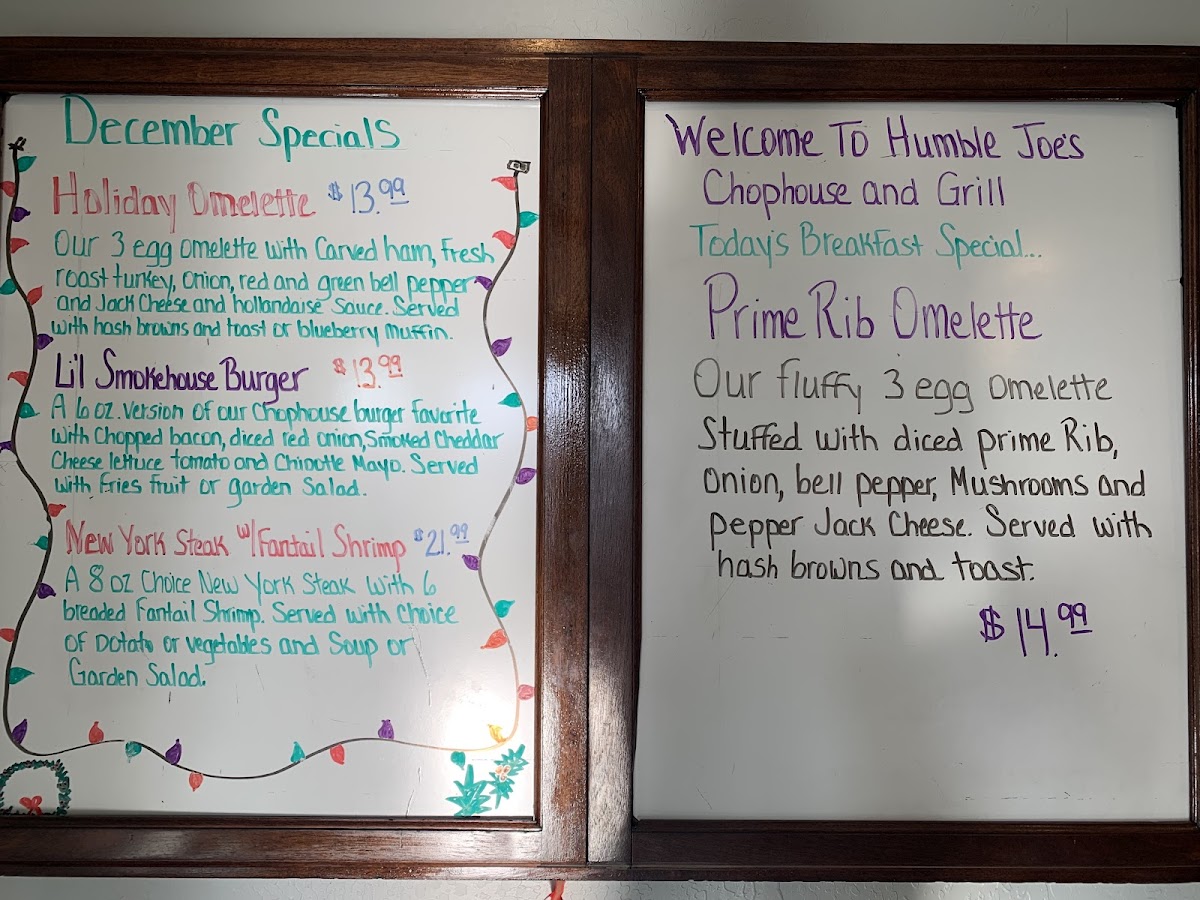 December Specials
Holiday Omelette $13.99
Our 3 egg omelette with Carved ham, fresh
roast turkey, onion, red and green bell pepper
and Jack Cheese and hollandaise Sauce. Served
with hash browns and toast or blueberry Muffin.
Li'l Smokehouse Burger $13.99
A 6 oz. version of our Chophouse burger favorite
with Chopped bacon, diced red onion, Smoked Cheddar
Cheese lettuce tomato and Chipotle Mayo. Served
with fries fruit or garden Salad.
New York Steak w/Fantail Shrimp $21.99
A 8 oz Choice New York Steak with 6
breaded Fantail Shrimp. Served with choice
of potato or vegetables and Soup or
Garden Salad.
Welcome To Humble Joe's
Chophouse and Grill
Today's Breakfast Special...
Prime Rib Omelette
Our fluffy 3 egg omelette
Stuffed with diced prime Rib,
Onion, bell pepper, Mushrooms and
pepper Jack Cheese. Served with
hash browns and toast.
$14.99